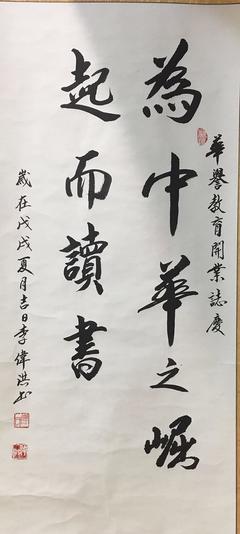 華譽教育開業誌慶
為中華之崛
起而讀書
歲在戊戌夏月吉日李偉洪書